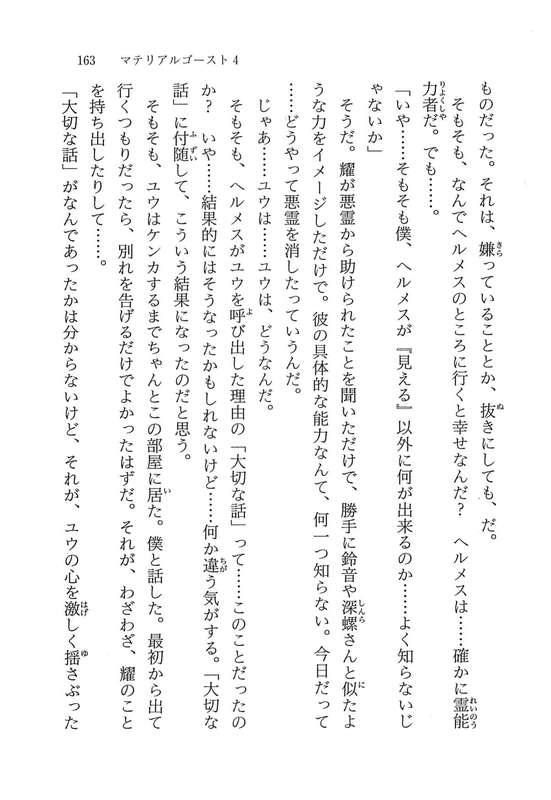 163　マテリアルゴースト4
ものだった。それは、嫌っていることとか、抜きにしても、だ。
そもそも、なんでヘルメスのところに行くと幸せなんだ？　ヘルメスは……確かに霊能
力者だ。でも……。
「いや……そもそも僕、ヘルメスが『見える』以外に何が出来るのか……よく知らないじ
ゃないか」
そうだ。耀が悪霊から助けられたことを聞いただけで、勝手に鈴音や深螺さんと似たよ
うな力をイメージしただけで。彼の具体的な能力なんて、何一つ知らない。今日だって
……どうやって悪霊を消したっていうんだ。
じゃあ……ユウは……ユウは、どうなんだ。
そもそも、ヘルメスがユウを呼び出した理由の「大切な話」って……このことだったの
か？　いや……結果的にはそうなったかもしれないけど……何か違う気がする。「大切な
話」に付随して、こういう結果になったのだと思う。
そもそも、ユウはケンカするまでちゃんとこの部屋に居た。僕と話した。最初から出て
行くつもりだったら、別れを告げるだけでよかったはずだ。それが、わざわざ、耀のこと
を持ち出したりして……。
「大切な話」がなんであったかは分からないけど、それが、ユウの心を激しく揺さぶった